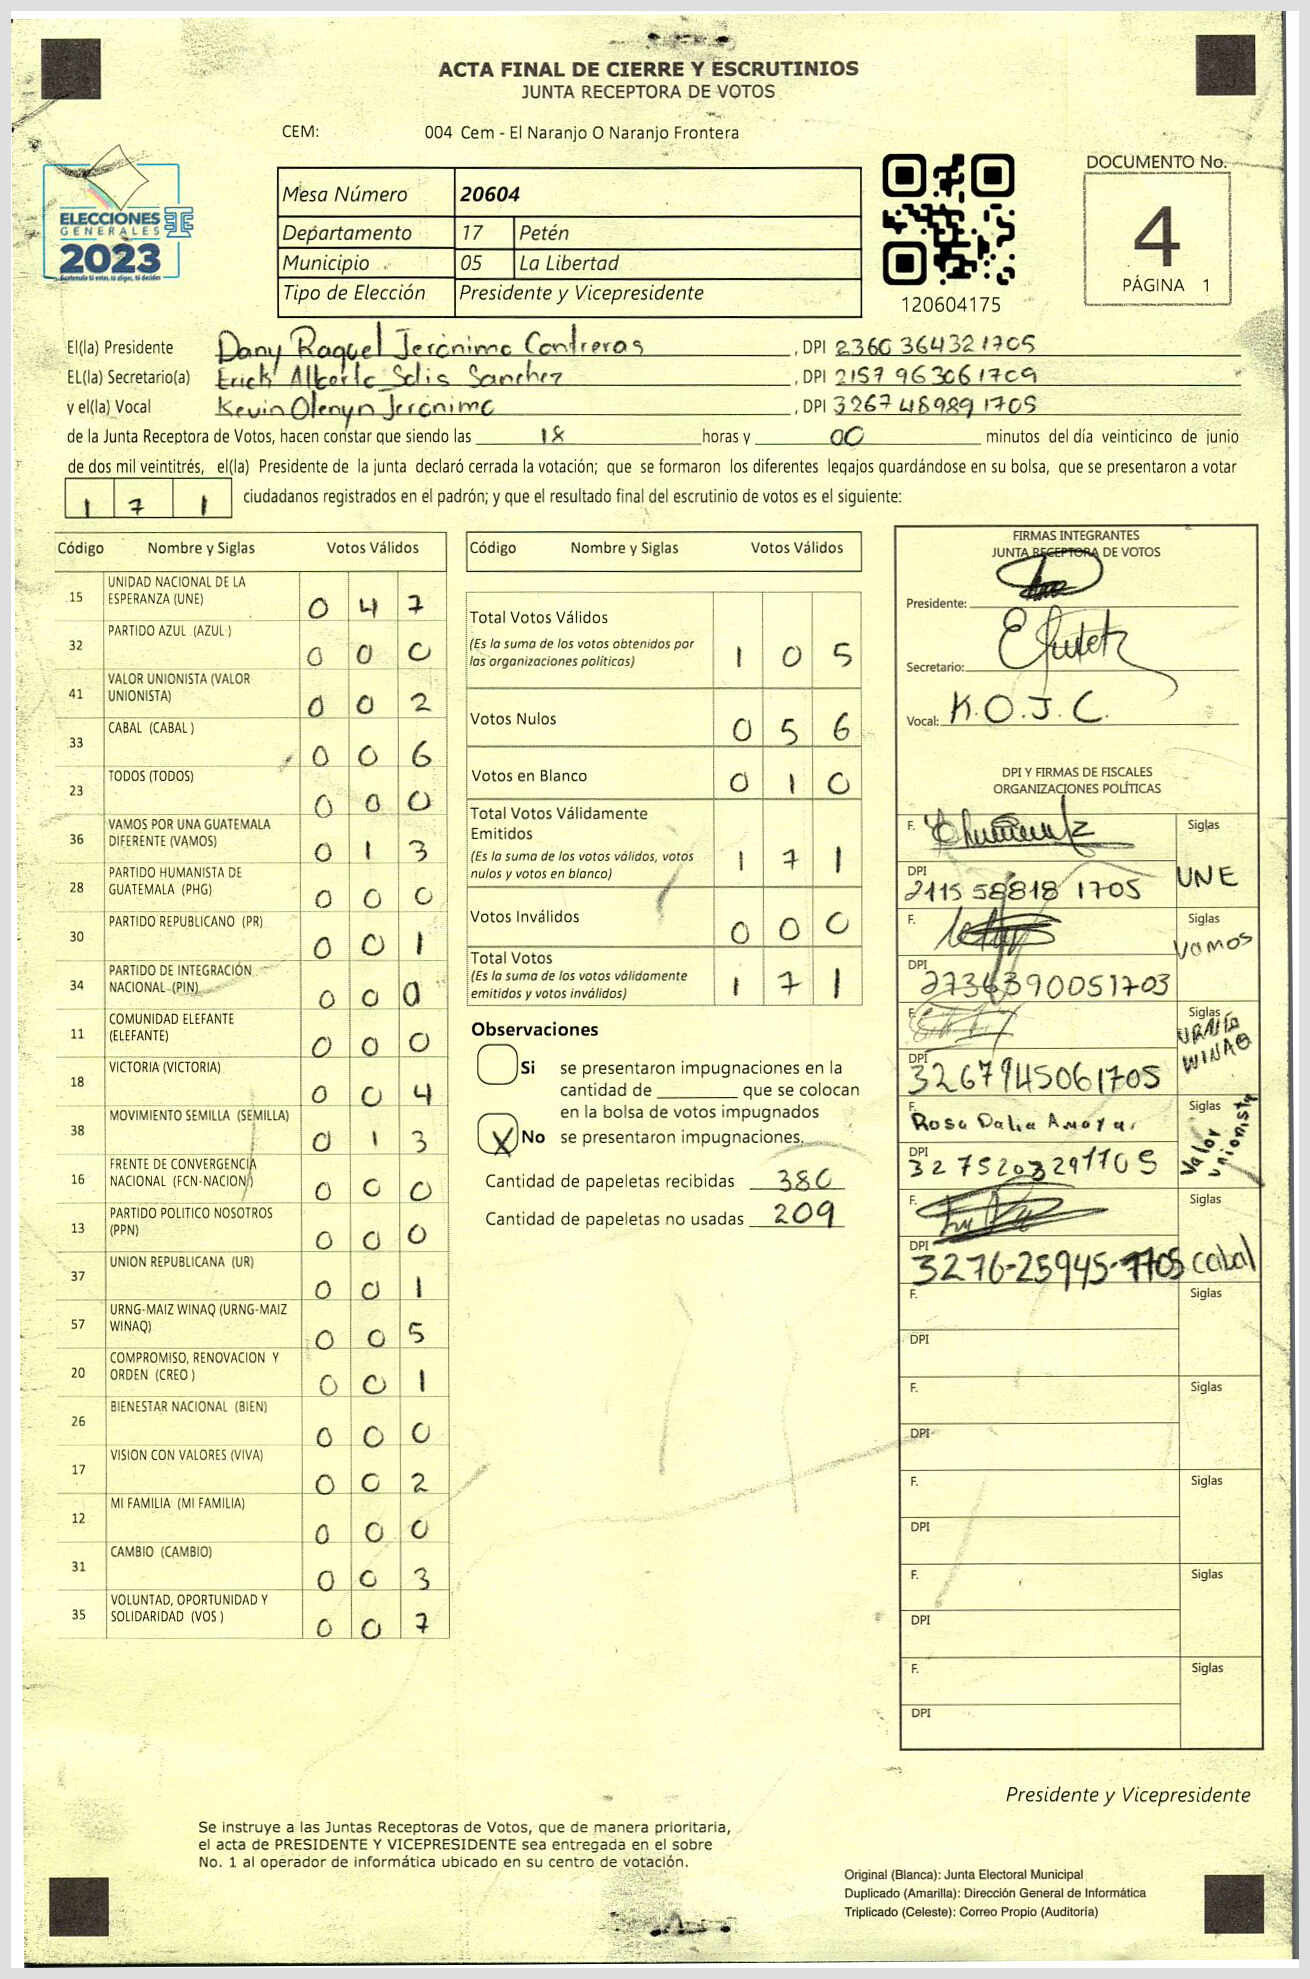 ACTA FINAL DE CIERRE Y ESCRUTINIOS
JUNTA RECEPTORA DE VOTOS
CEM: 004 Cem - El Naranjo O Naranjo Frontera
ELECCIONES
GENERALES
2023
Mesa Número 20604
Departamento 17 Petén
Municipio 05 La Libertad
Tipo de Elección Presidente y Vicepresidente
120604175
DOCUMENTO No.
4
PÁGINA 1
El(la) Presidente Dany Raquel Jerónimo Contreras, DPI 2360 36432 1705
EL(la) Secretario(a) Erick Alberto Solis Sanchez, DPI 2157 96306 1709
y el(la) Vocal Kevin Olenyn Jerónimo, DPI 3267 48989 1705
de la Junta Receptora de Votos, hacen constar que siendo las 18 horas y 00 minutos del día veinticinco de junio
de dos mil veintitrés, el(la) Presidente de la junta declaró cerrada la votación; que se formaron los diferentes legajos guardándose en su bolsa, que se presentaron a votar
1 7 1 ciudadanos registrados en el padrón; y que el resultado final del escrutinio de votos es el siguiente:
Código Nombre y Siglas Votos Válidos
15 UNIDAD NACIONAL DE LA ESPERANZA (UNE) 0 4 7
32 PARTIDO AZUL (AZUL) 0 0 0
41 VALOR UNIONISTA (VALOR UNIONISTA) 0 0 2
33 CABAL (CABAL) 0 0 6
23 TODOS (TODOS) 0 0 0
36 VAMOS POR UNA GUATEMALA DIFERENTE (VAMOS) 0 1 3
28 PARTIDO HUMANISTA DE GUATEMALA (PHG) 0 0 0
30 PARTIDO REPUBLICANO (PR) 0 0 1
34 PARTIDO DE INTEGRACIÓN NACIONAL (PIN) 0 0 0
11 COMUNIDAD ELEFANTE (ELEFANTE) 0 0 0
18 VICTORIA (VICTORIA) 0 0 4
38 MOVIMIENTO SEMILLA (SEMILLA) 0 1 3
16 FRENTE DE CONVERGENCIA NACIONAL (FCN-NACION) 0 0 0
13 PARTIDO POLITICO NOSOTROS (PPN) 0 0 0
37 UNION REPUBLICANA (UR) 0 0 1
57 URNG-MAIZ WINAQ (URNG-MAIZ WINAQ) 0 0 5
20 COMPROMISO, RENOVACION Y ORDEN (CREO) 0 0 1
26 BIENESTAR NACIONAL (BIEN) 0 0 0
17 VISION CON VALORES (VIVA) 0 0 2
12 MI FAMILIA (MI FAMILIA) 0 0 0
31 CAMBIO (CAMBIO) 0 0 3
35 VOLUNTAD, OPORTUNIDAD Y SOLIDARIDAD (VOS) 0 0 7
Código Nombre y Siglas Votos Válidos
Total Votos Válidos 1 0 5
(Es la suma de los votos obtenidos por
las organizaciones políticas)
Votos Nulos 0 5 6
Votos en Blanco 0 1 0
Total Votos Válidamente
Emitidos 1 7 1
(Es la suma de los votos válidos, votos
nulos y votos en blanco)
Votos Inválidos 0 0 0
Total Votos 1 7 1
(Es la suma de los votos válidamente
emitidos y votos inválidos)
Observaciones
Si se presentaron impugnaciones en la
cantidad de ________ que se colocan
en la bolsa de votos impugnados
X No se presentaron impugnaciones.
Cantidad de papeletas recibidas 380
Cantidad de papeletas no usadas 209
FIRMAS INTEGRANTES
JUNTA RECEPTORA DE VOTOS
Presidente:
Secretario:
Vocal: K.O.J.C.
DPI Y FIRMAS DE FISCALES
ORGANIZACIONES POLÍTICAS
F. Siglas
DPI 2115 58818 1705 UNE
F. Siglas
DPI 2736390051703 Vamos
F. Siglas
DPI 3267945061705 WINAQ
F. Rosa Dalia Amaya Siglas
DPI 3275203291705 Valor unionista
F. Siglas
DPI 3276-25945-1705 Cabal
F. Siglas
DPI
F. Siglas
DPI
F. Siglas
DPI
F. Siglas
DPI
F. Siglas
DPI
Presidente y Vicepresidente
Se instruye a las Juntas Receptoras de Votos, que de manera prioritaria,
el acta de PRESIDENTE Y VICEPRESIDENTE sea entregada en el sobre
No. 1 al operador de informática ubicado en su centro de votación.
Original (Blanca): Junta Electoral Municipal
Duplicado (Amarilla): Dirección General de Informática
Triplicado (Celeste): Correo Propio (Auditoría)